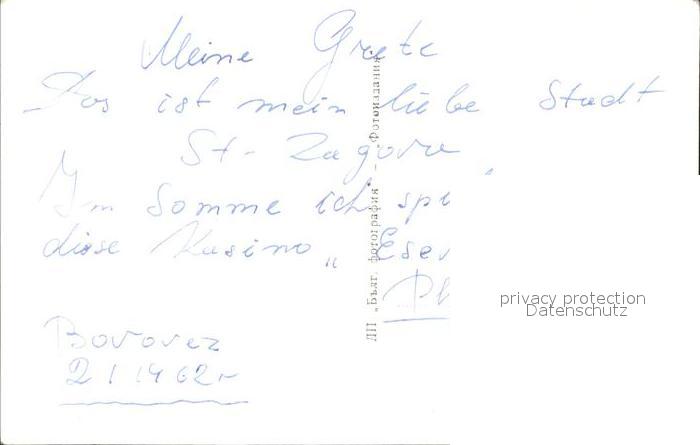 Meine Grete
Das ist mein liebe Stadt
St - Zagora
Im Somme ich spi
diese Kasino „ Esen
Pl
Borovez
2 I 1962 г
ДП „Бълг. фотография“ – „Фотоиздания
privacy protection
Datenschutz